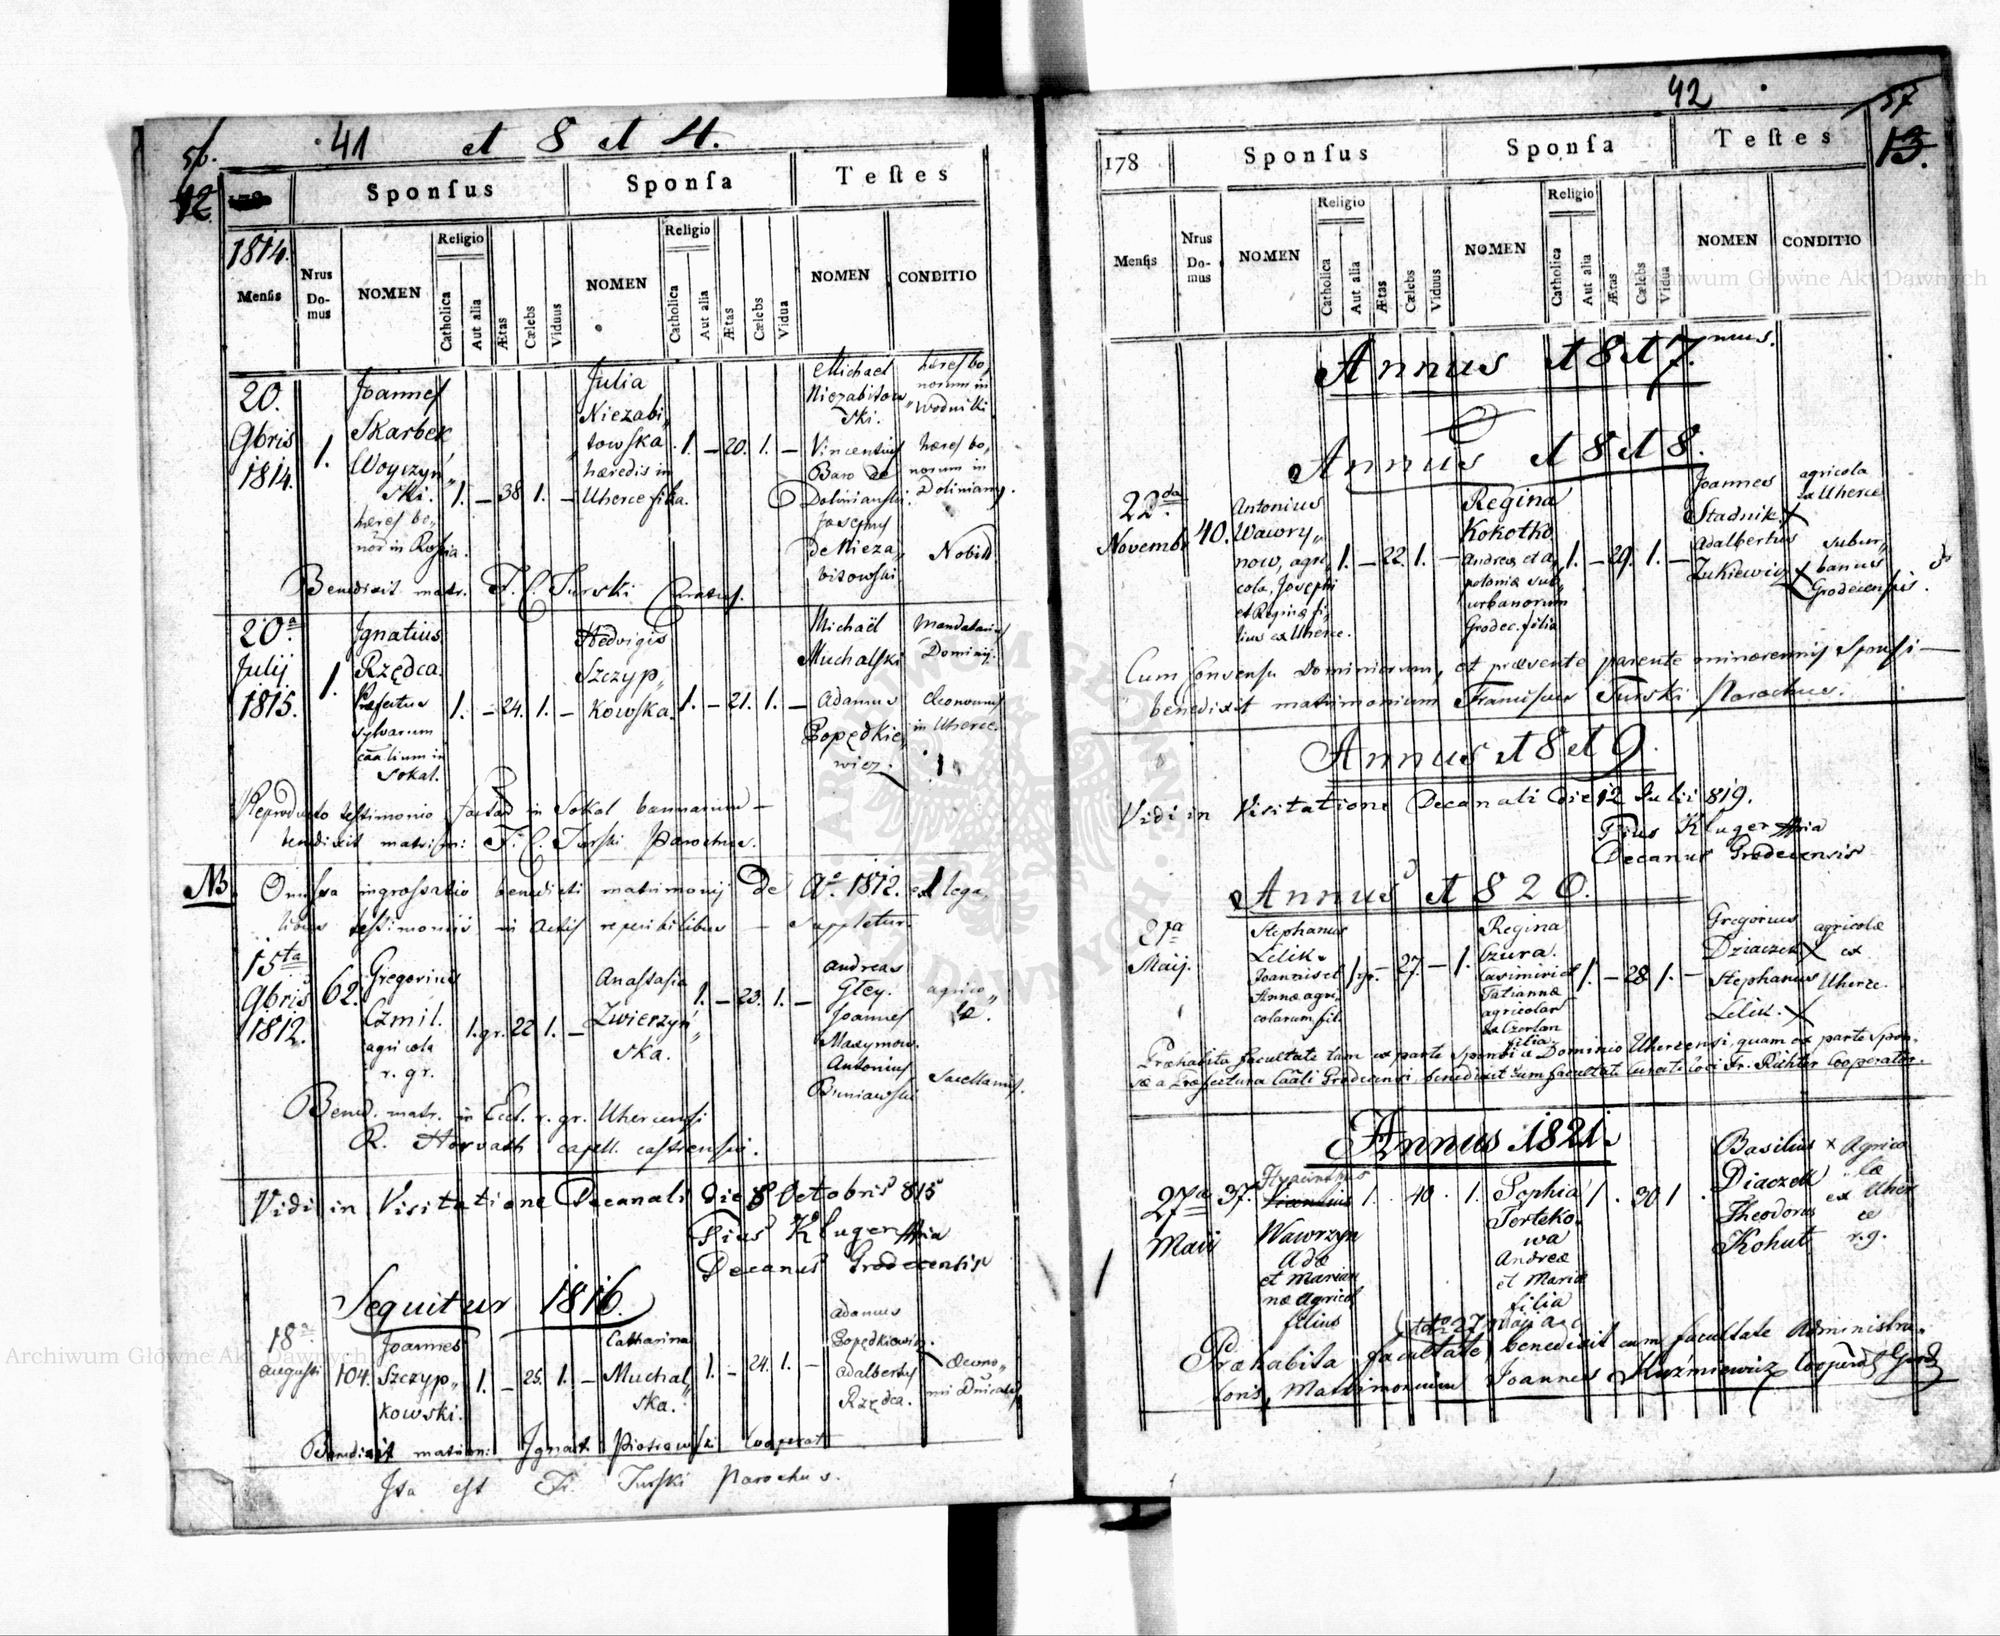 56. 41 1814.
12.
Sponſus Sponſa Teſtes
1814.
Menſis Nrus Domus NOMEN Religio Catholica Aut alia Ætas Cælebs Viduus NOMEN Religio Catholica Aut alia Ætas Cælebs Vidua NOMEN CONDITIO
20.
9bris
1814.
1.
Joannes
Skarbek
Woyczyń„
ski.
hæres bo„
nor in Rossia.
1. – 38. 1. –
Julia
Niezabi„
towska
hæredis in
Uherce filia.
1. – 20. 1. –
Michael
Niezabitow„
ski.
Vincentius
Baro de
Doliniański.
Josephus
de Nieza„
bitowski
hæres bo„
norum in
Wodniki
hæres bo„
norum in
Doliniany.
Nobilis
Benedixit matr. F. C. Turski Curatus.
20ª
Julij
1815.
1.
Ignatius
Rzędca.
Præfectus
sylvarum
caālium in
Sokal.
1. – 24. 1. –
Hedvigis
Szczyp„
kowska.
1. – 21. 1. –
Michaël
Muchalski
Adamus
Popędkie„
wicz.
Mandatarius
Dominij.
Œconomus
in Uherce.
Reproducto testimonio factad in Sokal bannorum –
benedixit matrim: F. C. Turski Parochus.
NB. Omissa ingrossatio benedicti matrimonij de Aº 1812. ex lega„
libus testimoniis in Actis reperibilibus – suppletur.
15ta
9bris
1812.
62.
Gregorius
Czmil.
agricola
r. gr.
1.gr. 22 1. –
Anastasia
Zwierzyń„
ska.
1. – 23. 1. –
Andreas
Głey.
Joannes
Maxymow.
Antonius
Buniawski
agrico„
læ.
Sacellanus.
Bened. matr. in Eccl. r. gr. Uhercensi
R. Horvath capell. castrensis.
Vidi in Visitatione Decanali die 8 Octobris 815
Pius Kluger
Decanus Grodecensis
Sequitur 1816.
18ª
augusti
104.
Joannes
Szczyp„
kowski.
1. – 25. 1. –
Catharina
Muchal„
ska.
1. – 24. 1. –
Adamus
Popędkiewicz.
Adalbertus
Rzędca.
Œcono„
mi
Benedixit matrim: Ignat. Piotrowski Cooperat
Ita est Fr. Turski Parochus.
42 57
13.
178 Sponſus Sponſa Teſtes
Menſis Nrus Domus NOMEN Religio Catholica Aut alia Ætas Cælebs Viduus NOMEN Religio Catholica Aut alia Ætas Cælebs Vidua NOMEN CONDITIO
Annus 1817. mus.
Annus 1818.
22da
Novembr
40.
Antonius
Wawry„
now, agri„
cola, Josephi
et Reginæ fi„
lius ex Uherce.
1. – 22. 1. –
Regina
Kokotko
Andreæ et A„
poloniæ sub„
urbanorum
Grodec. filia
1. – 29. 1. –
Joannes
Stadnik X
Adalbertus
Zukiewicz X
agricola
ex Uherce
subur„
banus
Grodecensis.
Cum Consensu Dominiorum, et præsente parente minorennis Sponsi –
benedixit matrimonium Franciscus Turski Parochus.
Annus 1819.
Vidi in Visitatione Decanali die 12 Julii 819.
Pius Kluger
Decanus Grodecensis
Annus 1820.
21ª
Maij.
Stephanus
Lelik.
Joannis et
Annæ agri„
colarum fil.
27. – 1.
Regina
Czura.
Casimiri et
Tatiannæ
agricolar
ex Czerlan
filia
1. – 28 1. –
Gregorius
Dziaczek X
Stephanus
Lelik. X
agricolæ
ex
Uherce.
Præhabita facultate tam ex parte Sponsi a Dominio Uhercensi, quam ex parte Spon„
sæ a Præfectura Caāli Grodecensi, benedixit cum facultate Curati loci Fr. Richter Cooperator.
Annus 1821.
27ª
Maii
37.
Hyacinthus
Wawrzyn
Adæ
et Marian
næ Agricol
filius
1. 40. 1.
Sophia
Terteko„
wa
Andreæ
et Mariæ
filia
1. 30 1.
Basilius X
Diaczek
Theodorus
Kohut
Agrico
læ
ex Uher
ce
r.g.
Præhabita facultate, benedixit cum facultate Administra„
toris, Matrimonium Joannes Kuźmiewicz
Archiwum Główne Akt Dawnych
Archiwum Główne Akt Dawnych
ARCHIWUM GŁÓWNE AKT DAWNYCH